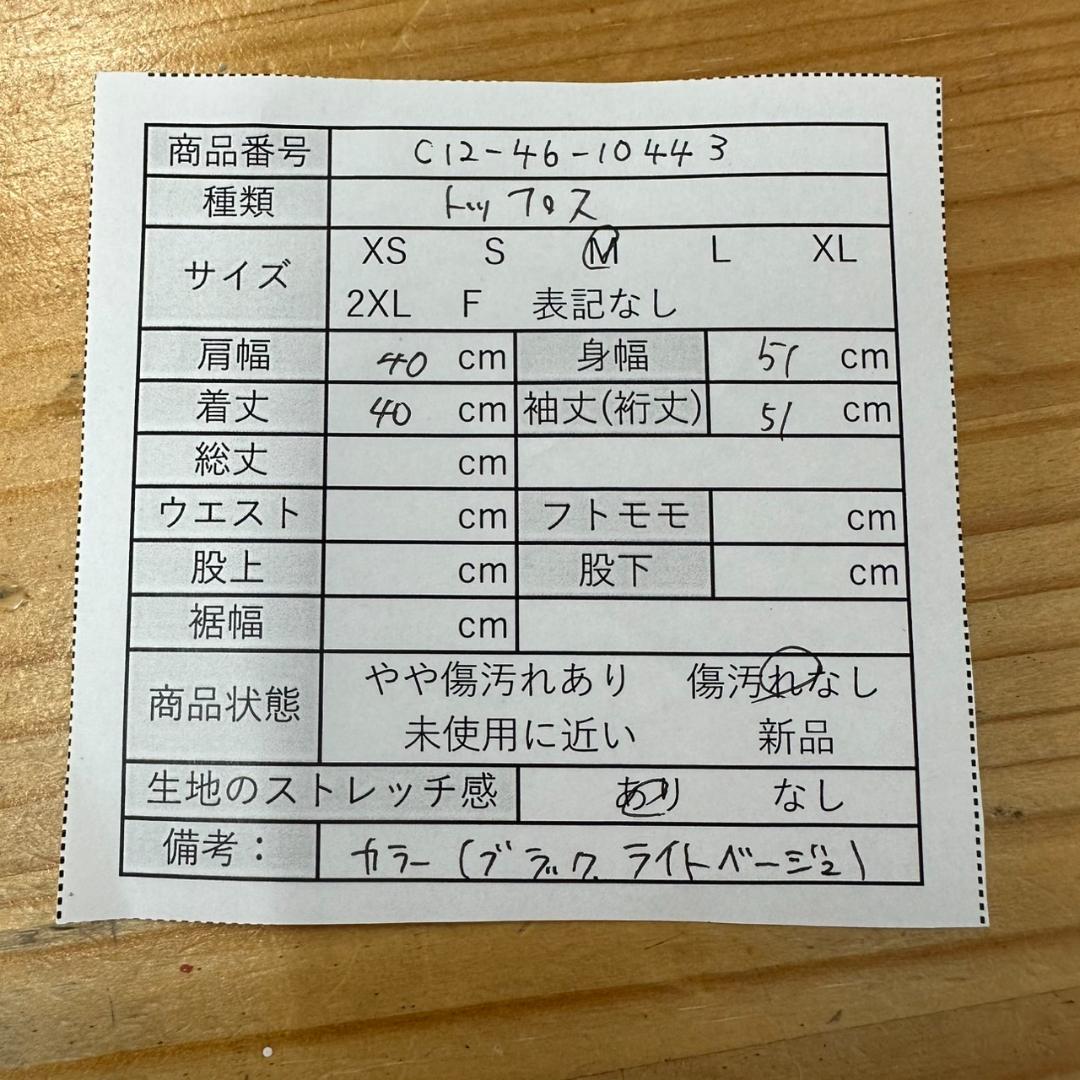 商品番号 C12-46-10443
種類 トップス
サイズ XS S M L XL
2XL F 表記なし
肩幅 40 cm 身幅 51 cm
着丈 40 cm 袖丈(裄丈) 51 cm
総丈 cm
ウエスト cm フトモモ cm
股上 cm 股下 cm
裾幅 cm
商品状態 やや傷汚れあり 傷汚れなし
未使用に近い 新品
生地のストレッチ感 あり なし
備考： カラー (ブラック ライトベージュ)